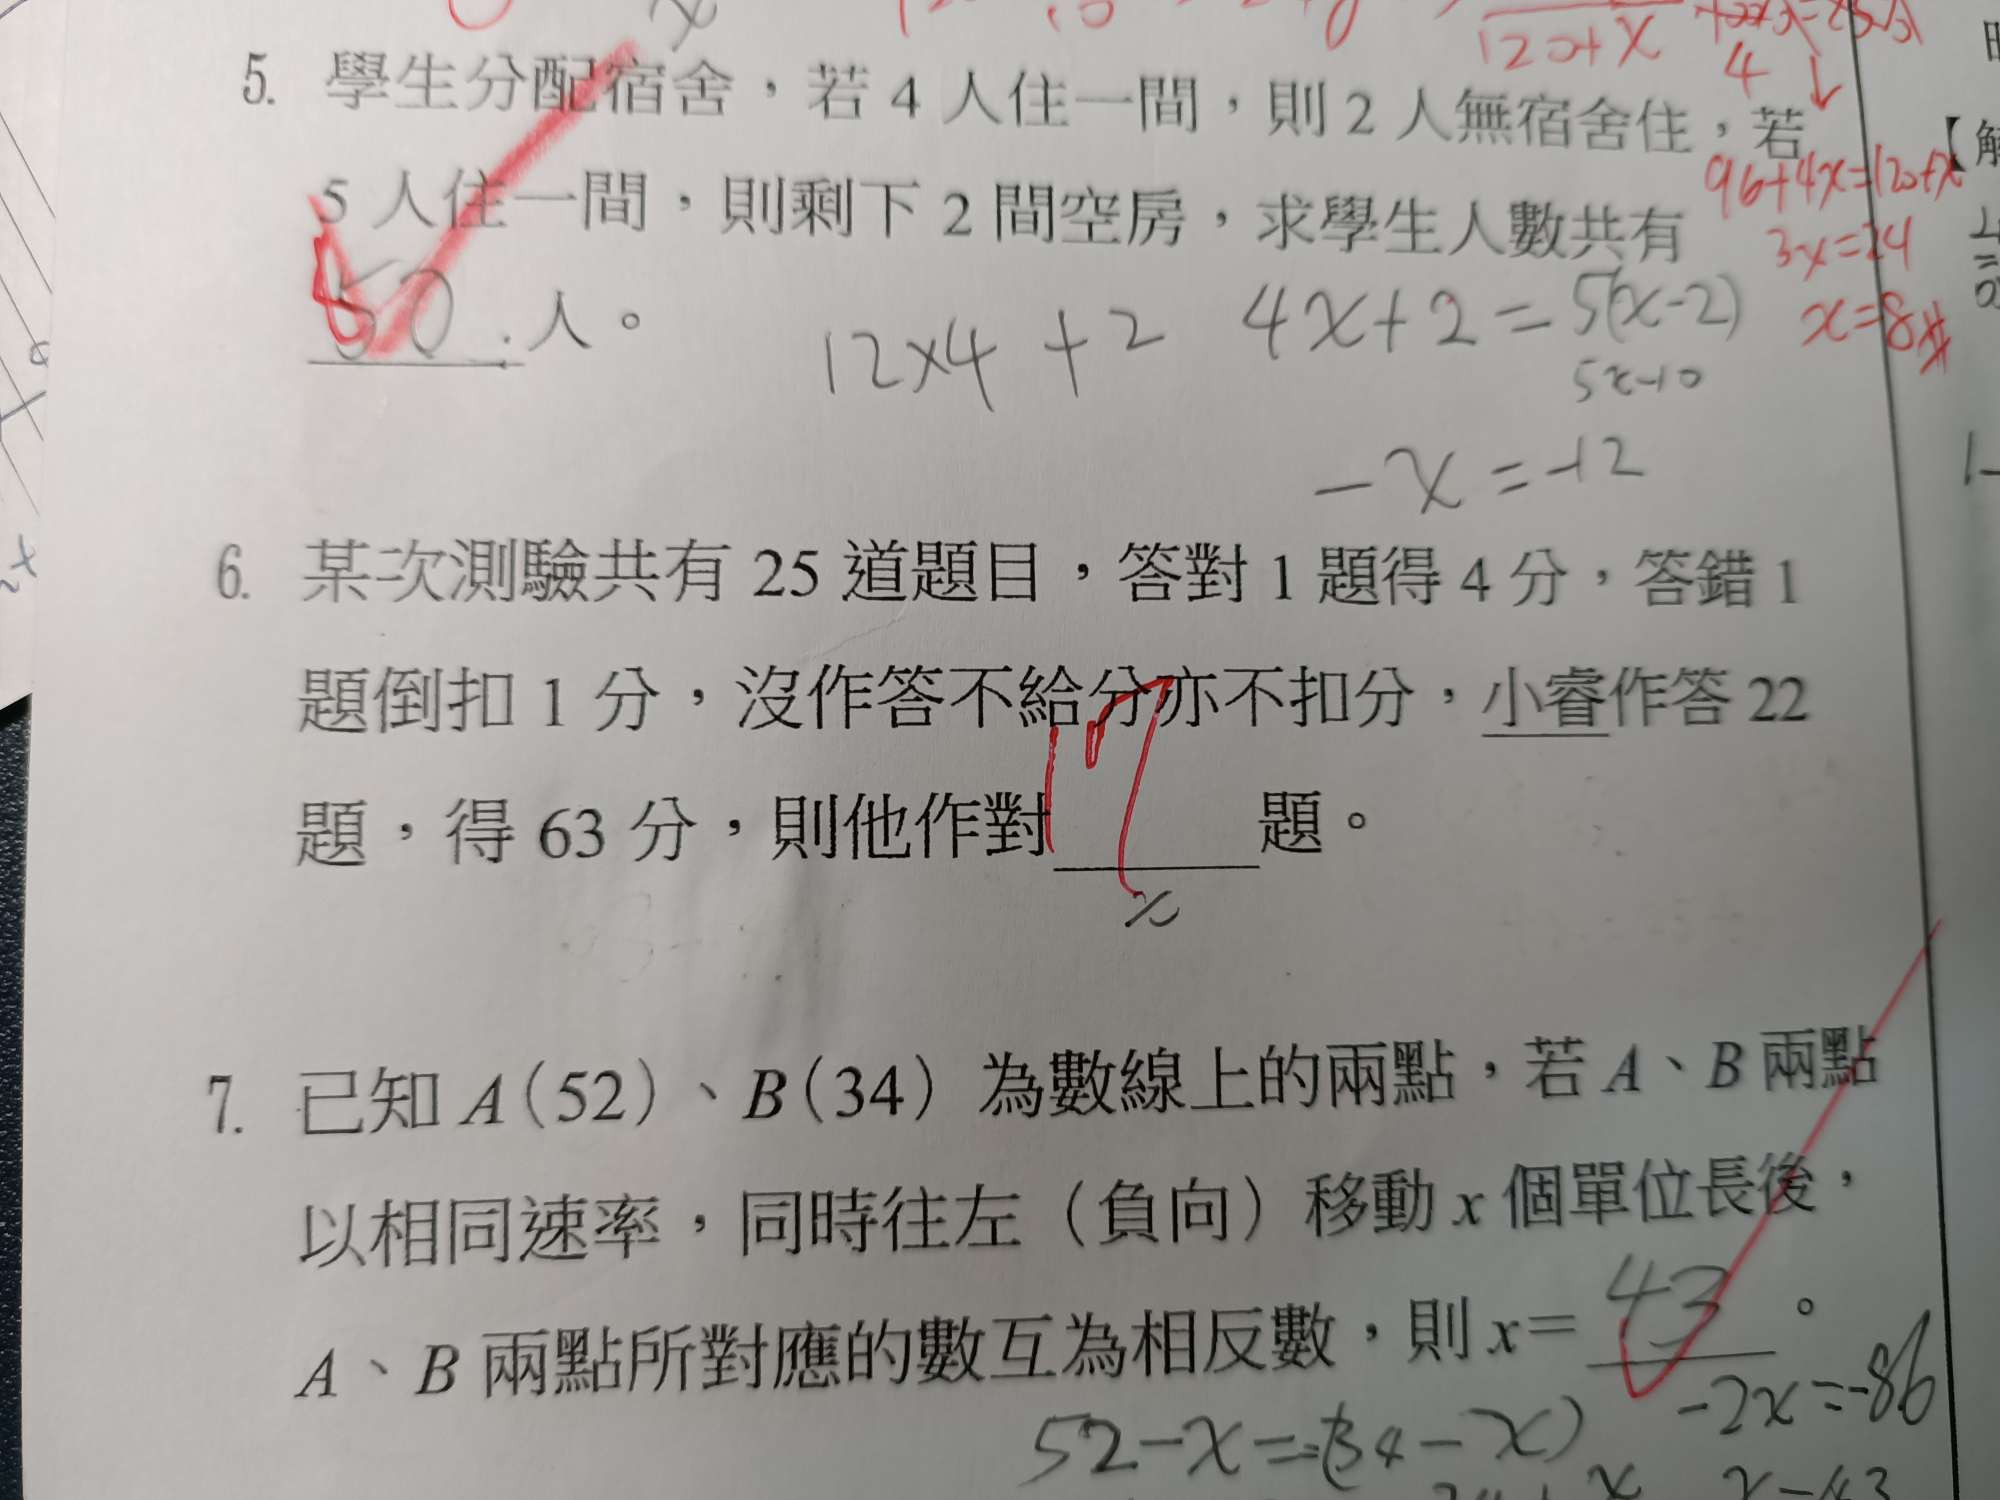 x
120+x
4
5. 學生分配宿舍,若 4 人住一間,則 2 人無宿舍住,若
5 人住一間,則剩下 2 間空房,求學生人數共有
50 人。
96+4x=120+x
3x=24
x=8
12×4+2
4x+2=5(x-2)
5x-10
-x=-12
6. 某次測驗共有 25 道題目,答對 1 題得 4 分,答錯 1
題倒扣 1 分,沒作答不給分亦不扣分,小睿作答 22
題,得 63 分,則他作對 17 題。
x
7. 已知 A(52)、B(34) 為數線上的兩點,若 A、B 兩點
以相同速率,同時往左(負向)移動 x 個單位長後,
A、B 兩點所對應的數互為相反數,則 x= 43 。
-2x=-86
52-x=-(34-x)
x=43
【解